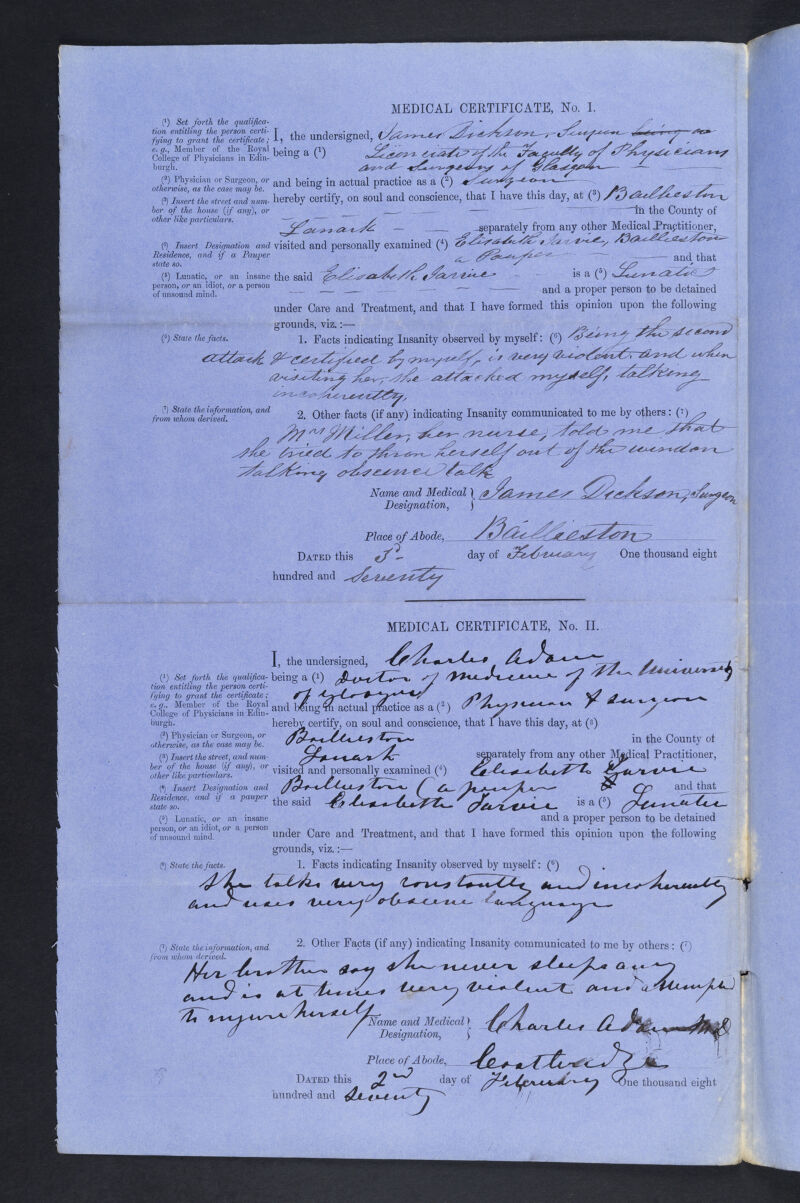 MEDICAL CERTIFICATE, No. I.
(¹) Set forth the qualifica-
tion entitling the person certi-
fying to grant the certificate;
e.g., Member of the Royal
College of Physicians in Edin-
burgh.
I, the undersigned, James Dickson, Surgeon being a
being a (¹) Licenciate of the Faculty of Physicians
and Surgeons of Glasgow
(²) Physician or Surgeon, or
otherwise, as the case may be.
and being in actual practice as a (²) Surgeon,
(³) Insert the street and num-
ber of the house (if any), or
other like particulars.
hereby certify, on soul and conscience, that I have this day, at (³) Baillieston
in the County of
Lanark separately from any other Medical Practitioner,
(⁴) Insert Designation and
Residence, and if a Pauper
state so.
visited and personally examined (⁴) Elisabeth Jarvie, Baillieston
a Pauper and that
(⁵) Lunatic, or an insane
person, or an idiot, or a person
of unsound mind.
the said Elisabeth Jarvie is a (⁵) Lunatic
and a proper person to be detained
under Care and Treatment, and that I have formed this opinion upon the following
grounds, viz.:—
(⁶) State the facts.
1. Facts indicating Insanity observed by myself: (⁶) Being the second
attack & certified by myself, is very violent, and when
visiting her, she attacked myself, talking
incoherently,
(⁷) State the information, and
from whom derived.
2. Other facts (if any) indicating Insanity communicated to me by others: (⁷)
Mrs Miller, her nurse, told me that
she tried to thron herself out of the window
talking obscence talk
Name and Medical Designation, James Dickson, Surgeon
Place of Abode, Baillieston
DATED this 3d day of February One thousand eight
hundred and Seventy
MEDICAL CERTIFICATE, No. II.
I, the undersigned, Charles Adam
(¹) Set forth the qualifica-
tion entitling the person certi-
fying to grant the certificate;
e.g., Member of the Royal
College of Physicians in Edin-
burgh.
being a (¹) Doctor of Medicine of the University
of Glasgow
and being in actual practice as a (²) Physician & Surgeon
hereby certify, on soul and conscience, that I have this day, at (³)
(²) Physician or Surgeon, or
otherwise, as the case may be.
Baillieston in the County of
(³) Insert the street, and num-
ber of the house (if any), or
other like particulars.
Lanark separately from any other Medical Practitioner,
visited and personally examined (⁴) Elisabeth Jarvie
(⁴) Insert Designation and
Residence, and if a pauper
state so.
Baillieston (a pauper and that
the said Elisabeth Jarvie is a (⁵) Lunatic
(⁵) Lunatic, or an insane
person, or an idiot, or a person
of unsound mind.
and a proper person to be detained
under Care and Treatment, and that I have formed this opinion upon the following
grounds, viz.:—
(⁶) State the facts.
1. Facts indicating Insanity observed by myself: (⁶)
She talks very constantly and incoherently
and uses very obscene language
(⁷) State the information, and
from whom derived.
2. Other Facts (if any) indicating Insanity communicated to me by others: (⁷)
Her brother say she never sleeps any
and is at times very violent and attempted
to injure herself
Name and Medical Designation, Charles Adam MD
Place of Abode, Coatbridge
DATED this 2nd day of February One thousand eight
hundred and Seventy